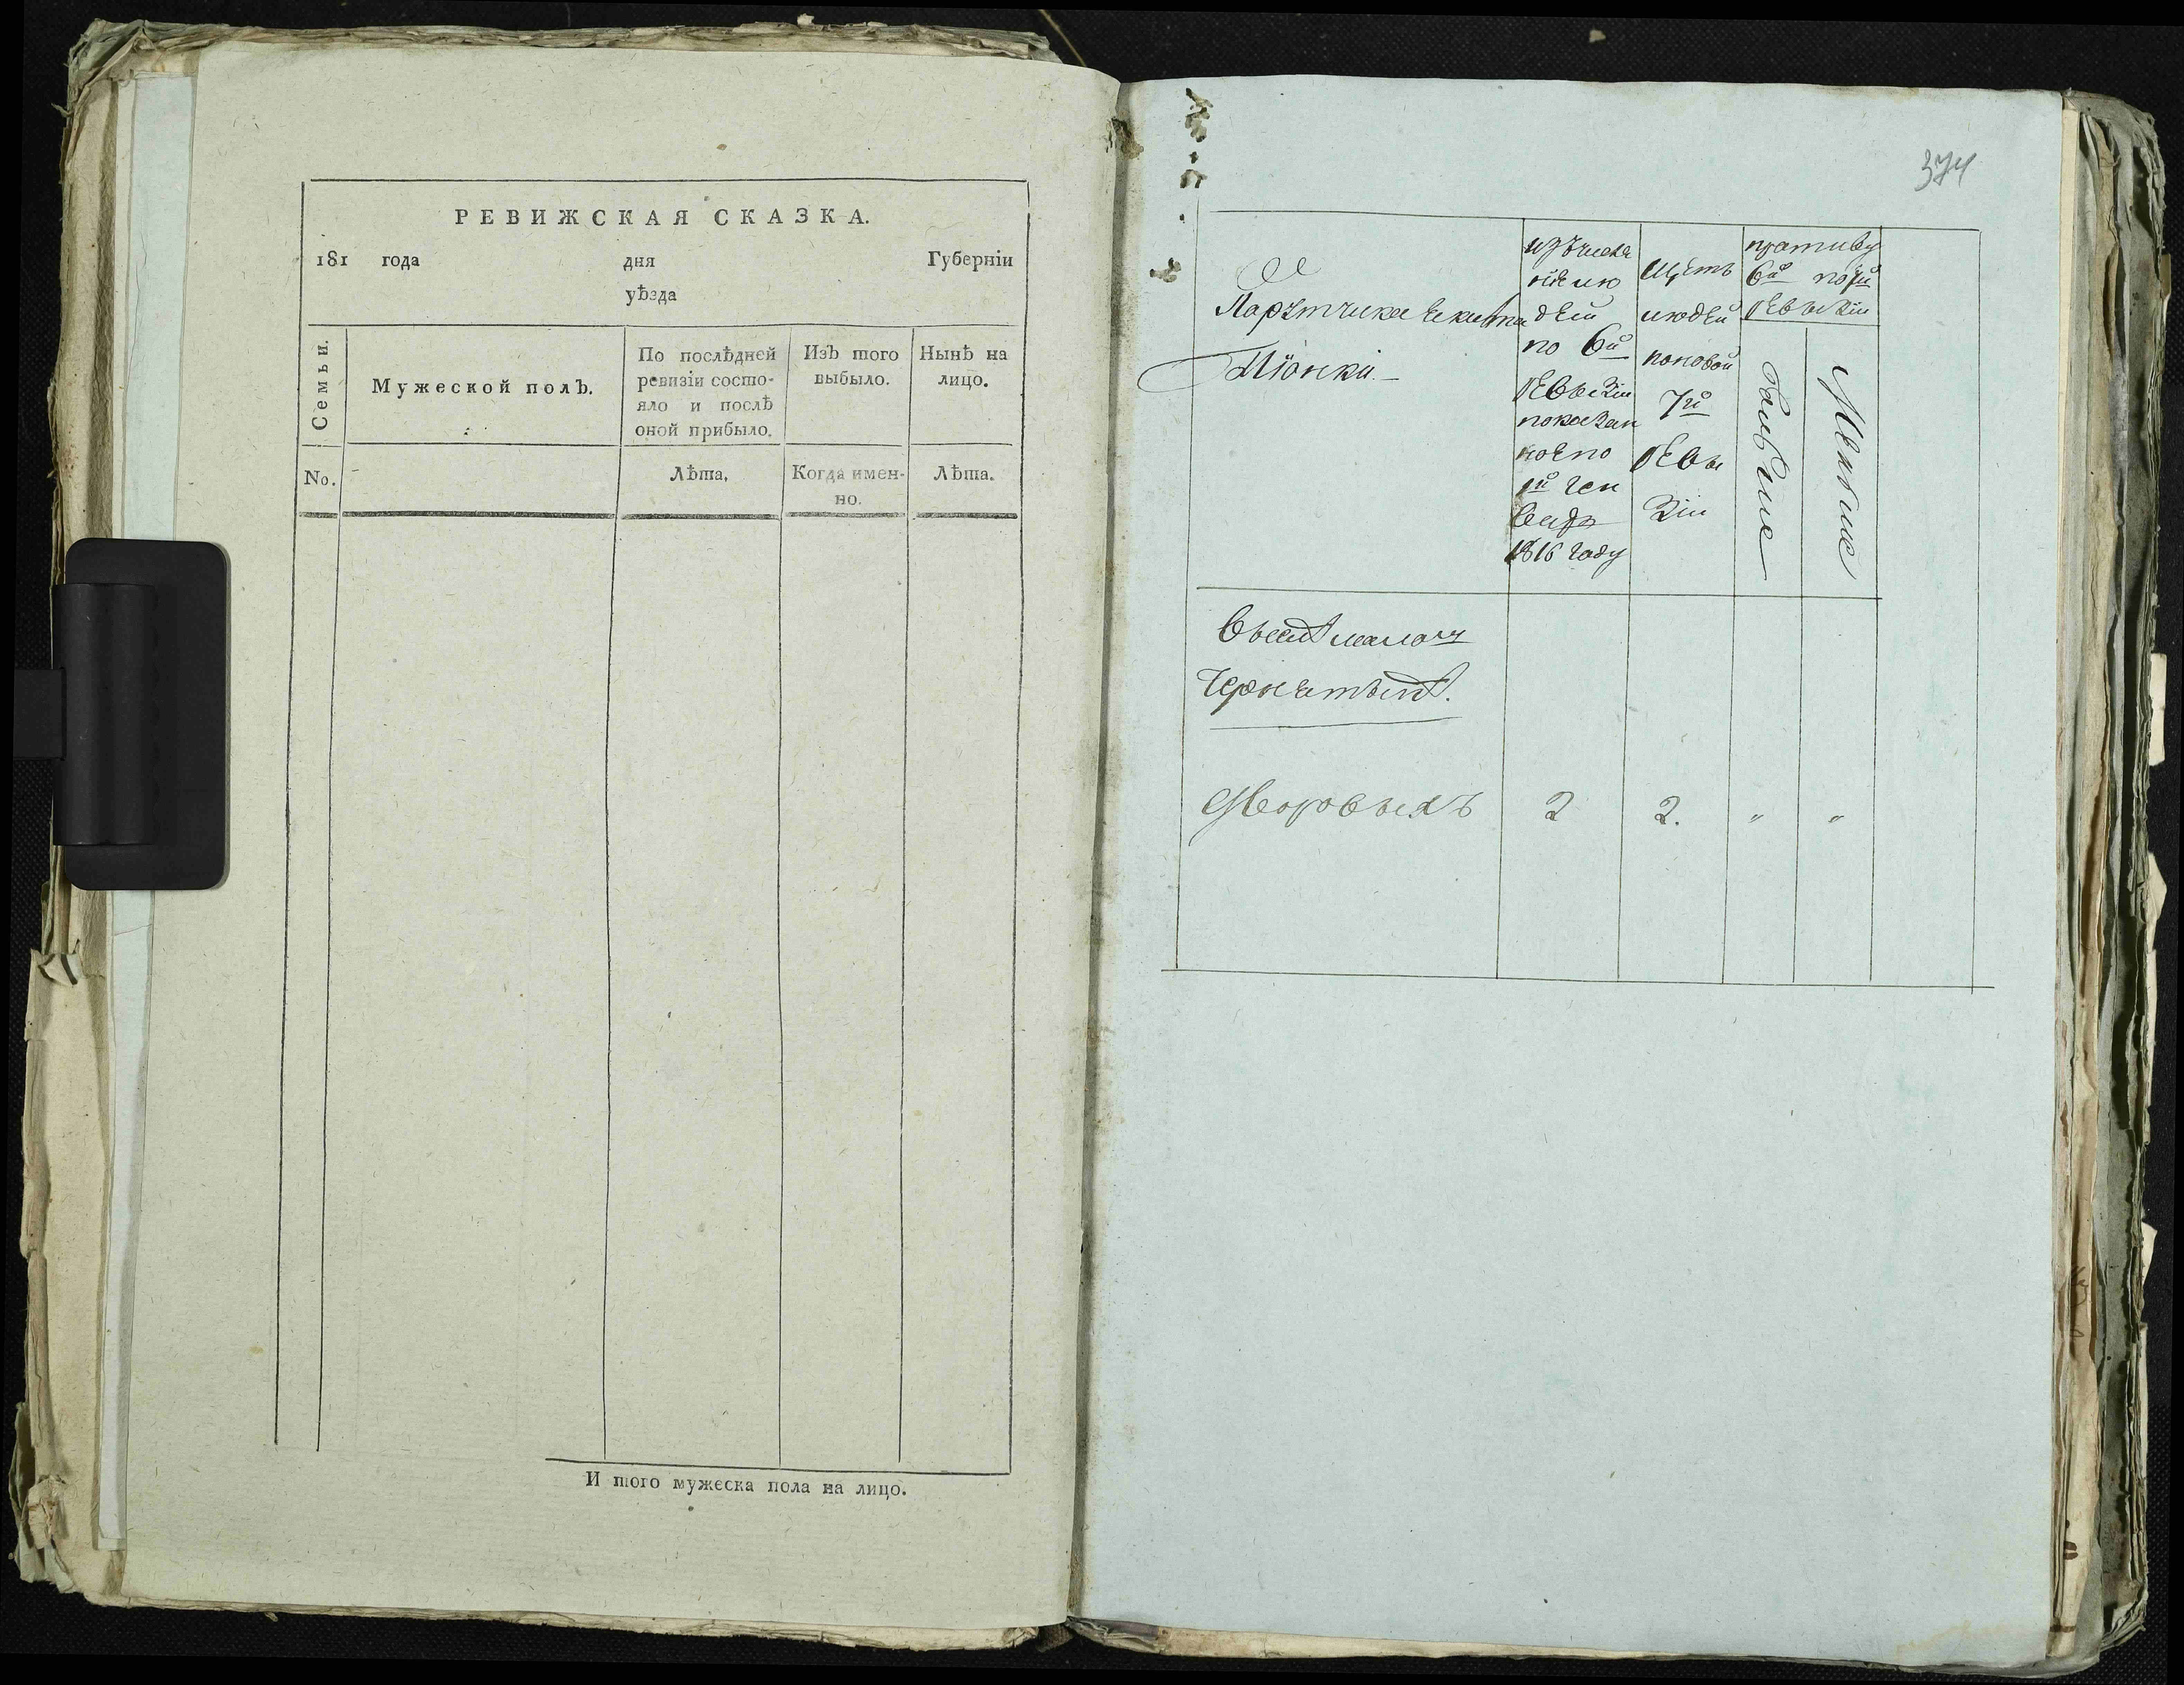 РЕВИЖСКАЯ СКАЗКА.
181 года дня Губерніи
уѣзда
Семьи.
Мужеской полъ.
По послѣдней
ревизіи состо-
яло и послѣ
оной прибыло.
Изъ того
выбыло.
Нынѣ на
лицо.
No.
Лѣта.
Когда имен-
но.
Лѣта.
И того мужеска пола на лицо.
374
дей
по 6й
ревизіи
показан
ное по
1816 году
щетъ
людей
поновой
7й
реви
зіи
противу
6й по 7й
ревизіи
болѣе
менѣе
Дворовыхъ 2 2. " "